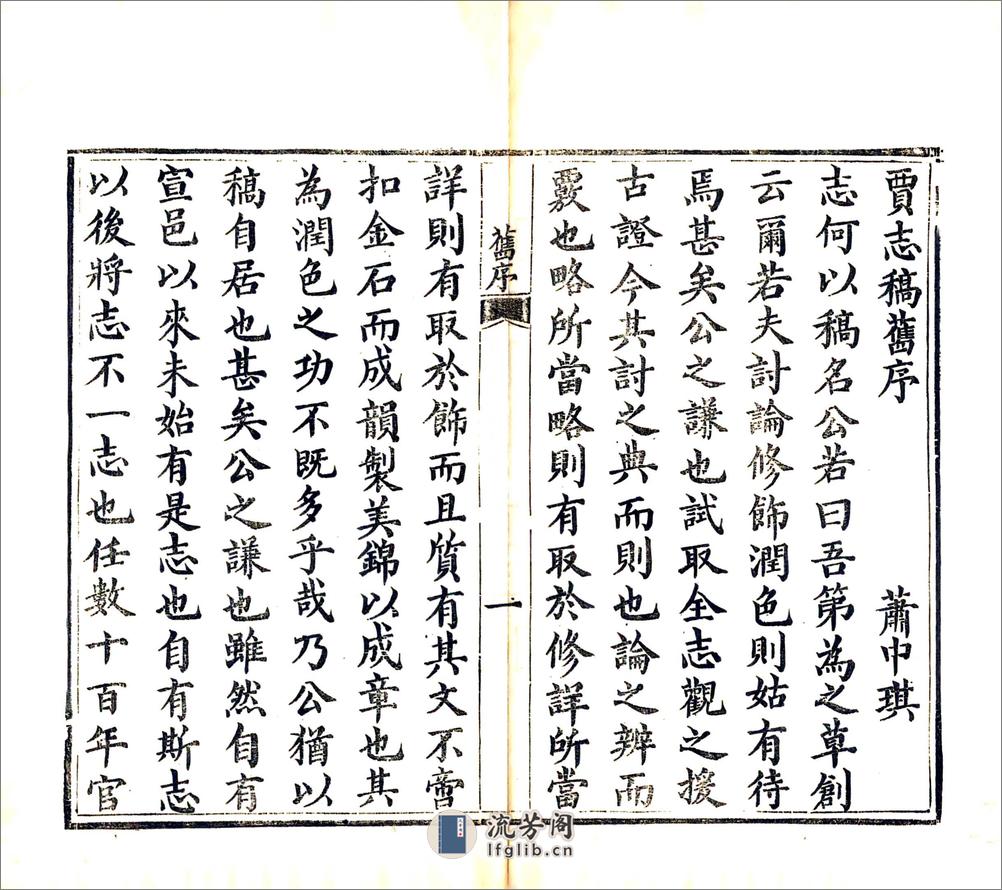 賈志稿舊序　蕭中琪
志何以稿名公若曰吾第為之草創
云爾若夫討論修飾潤色則姑有待
焉甚矣公之謙也試取全志觀之援
古證今其討之典而則也論之辨而
覈也略所當略則有取於修詳所當
舊序
一
詳則有取於飾而且質有其文不啻
扣金石而成韻製美錦以成章也其
為潤色之功不既多乎哉乃公猶以
稿自居也甚矣公之謙也雖然自有
宣邑以來未始有是志也自有斯志
以後將志不一志也任數十百年官
流芳阁
lfglib.cn